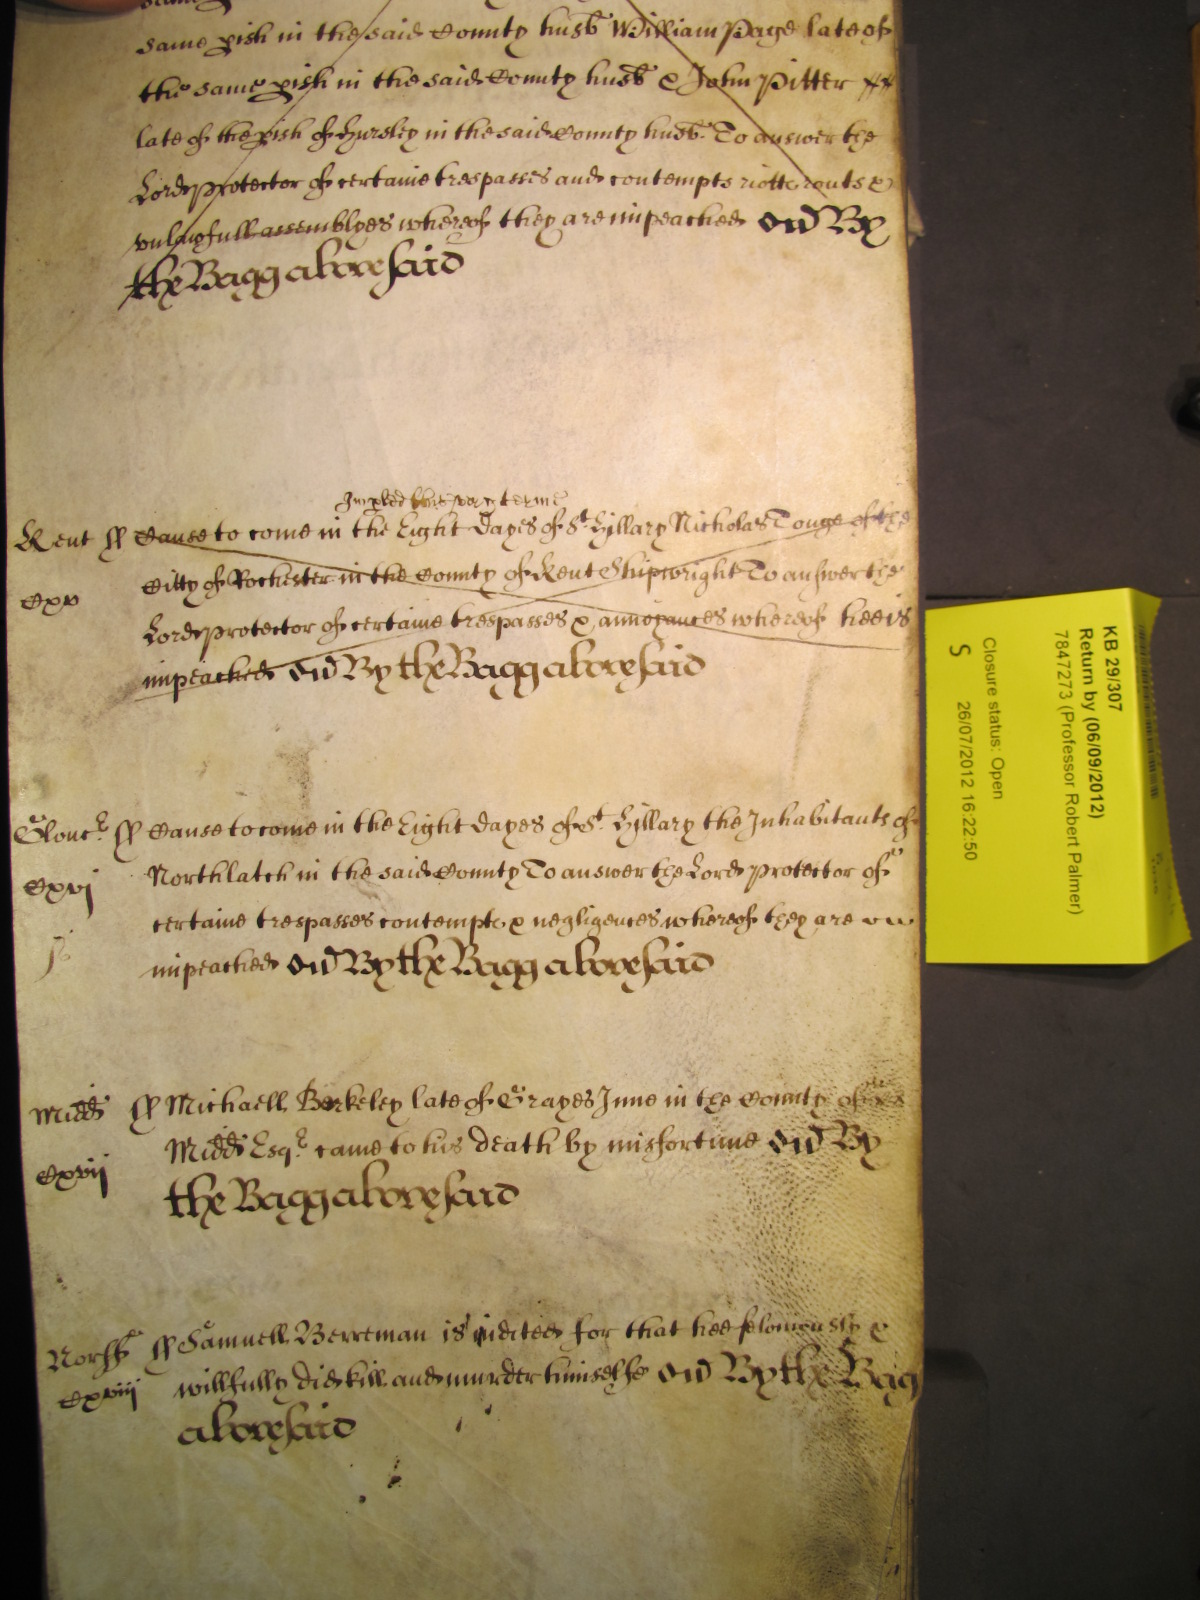 same pish in the said County husb William Page late of
the same pish in the said County husb & John Pitter
late of the pish of Hursley in the said County husb To answer the
Lord Protector of certaine trespasses and contempts riotte routs &
vnlawfull assemblyes whereof they are impeached By
the Bagg abovesaid
terme
Kent ss Cause to come in the Eight Dayes of St Hillary Nicholas Tonge of the
Citty of Rochester in the County of Kent Shipwright To answer the
Cxv
Lord Protector of certaine trespasses & annoyances whereof hee is
impeached By the Bagg abovesaid
Glouc ss Cause to come in the Eight Dayes of St Hillary the Inhabitants of
Northlatch in the said County To answer the Lord Protector of
Cxvj
certaine trespasses contempts & negligences whereof they are
impeached By the Bagg abovesaid
Midd ss Michaell Berkeley late of Grayes Inne in the County of
Midd Esqr came to his death by misfortune By
Cxvij
the Bagg abovesaid
Norff ss Samuell Berreman is indited for that hee feloniously &
Cxviij
willfully did kill and murder himselfe By the Bagg
abovesaid
KB 29/307
Return by (06/09/2012)
7847273 (Professor Robert Palmer)
Closure status: Open
S 26/07/2012 16:22:50